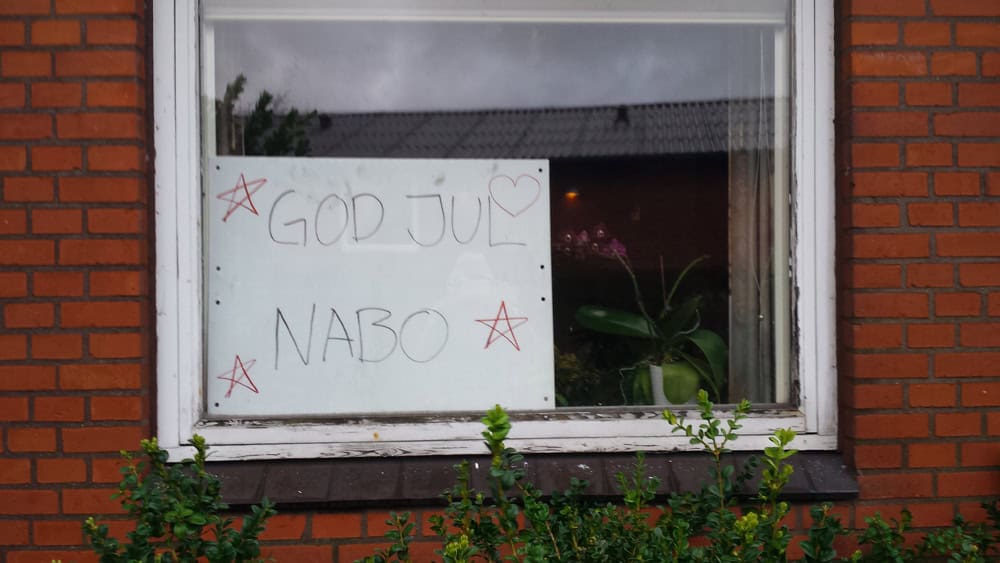 GOD JUL
NABO